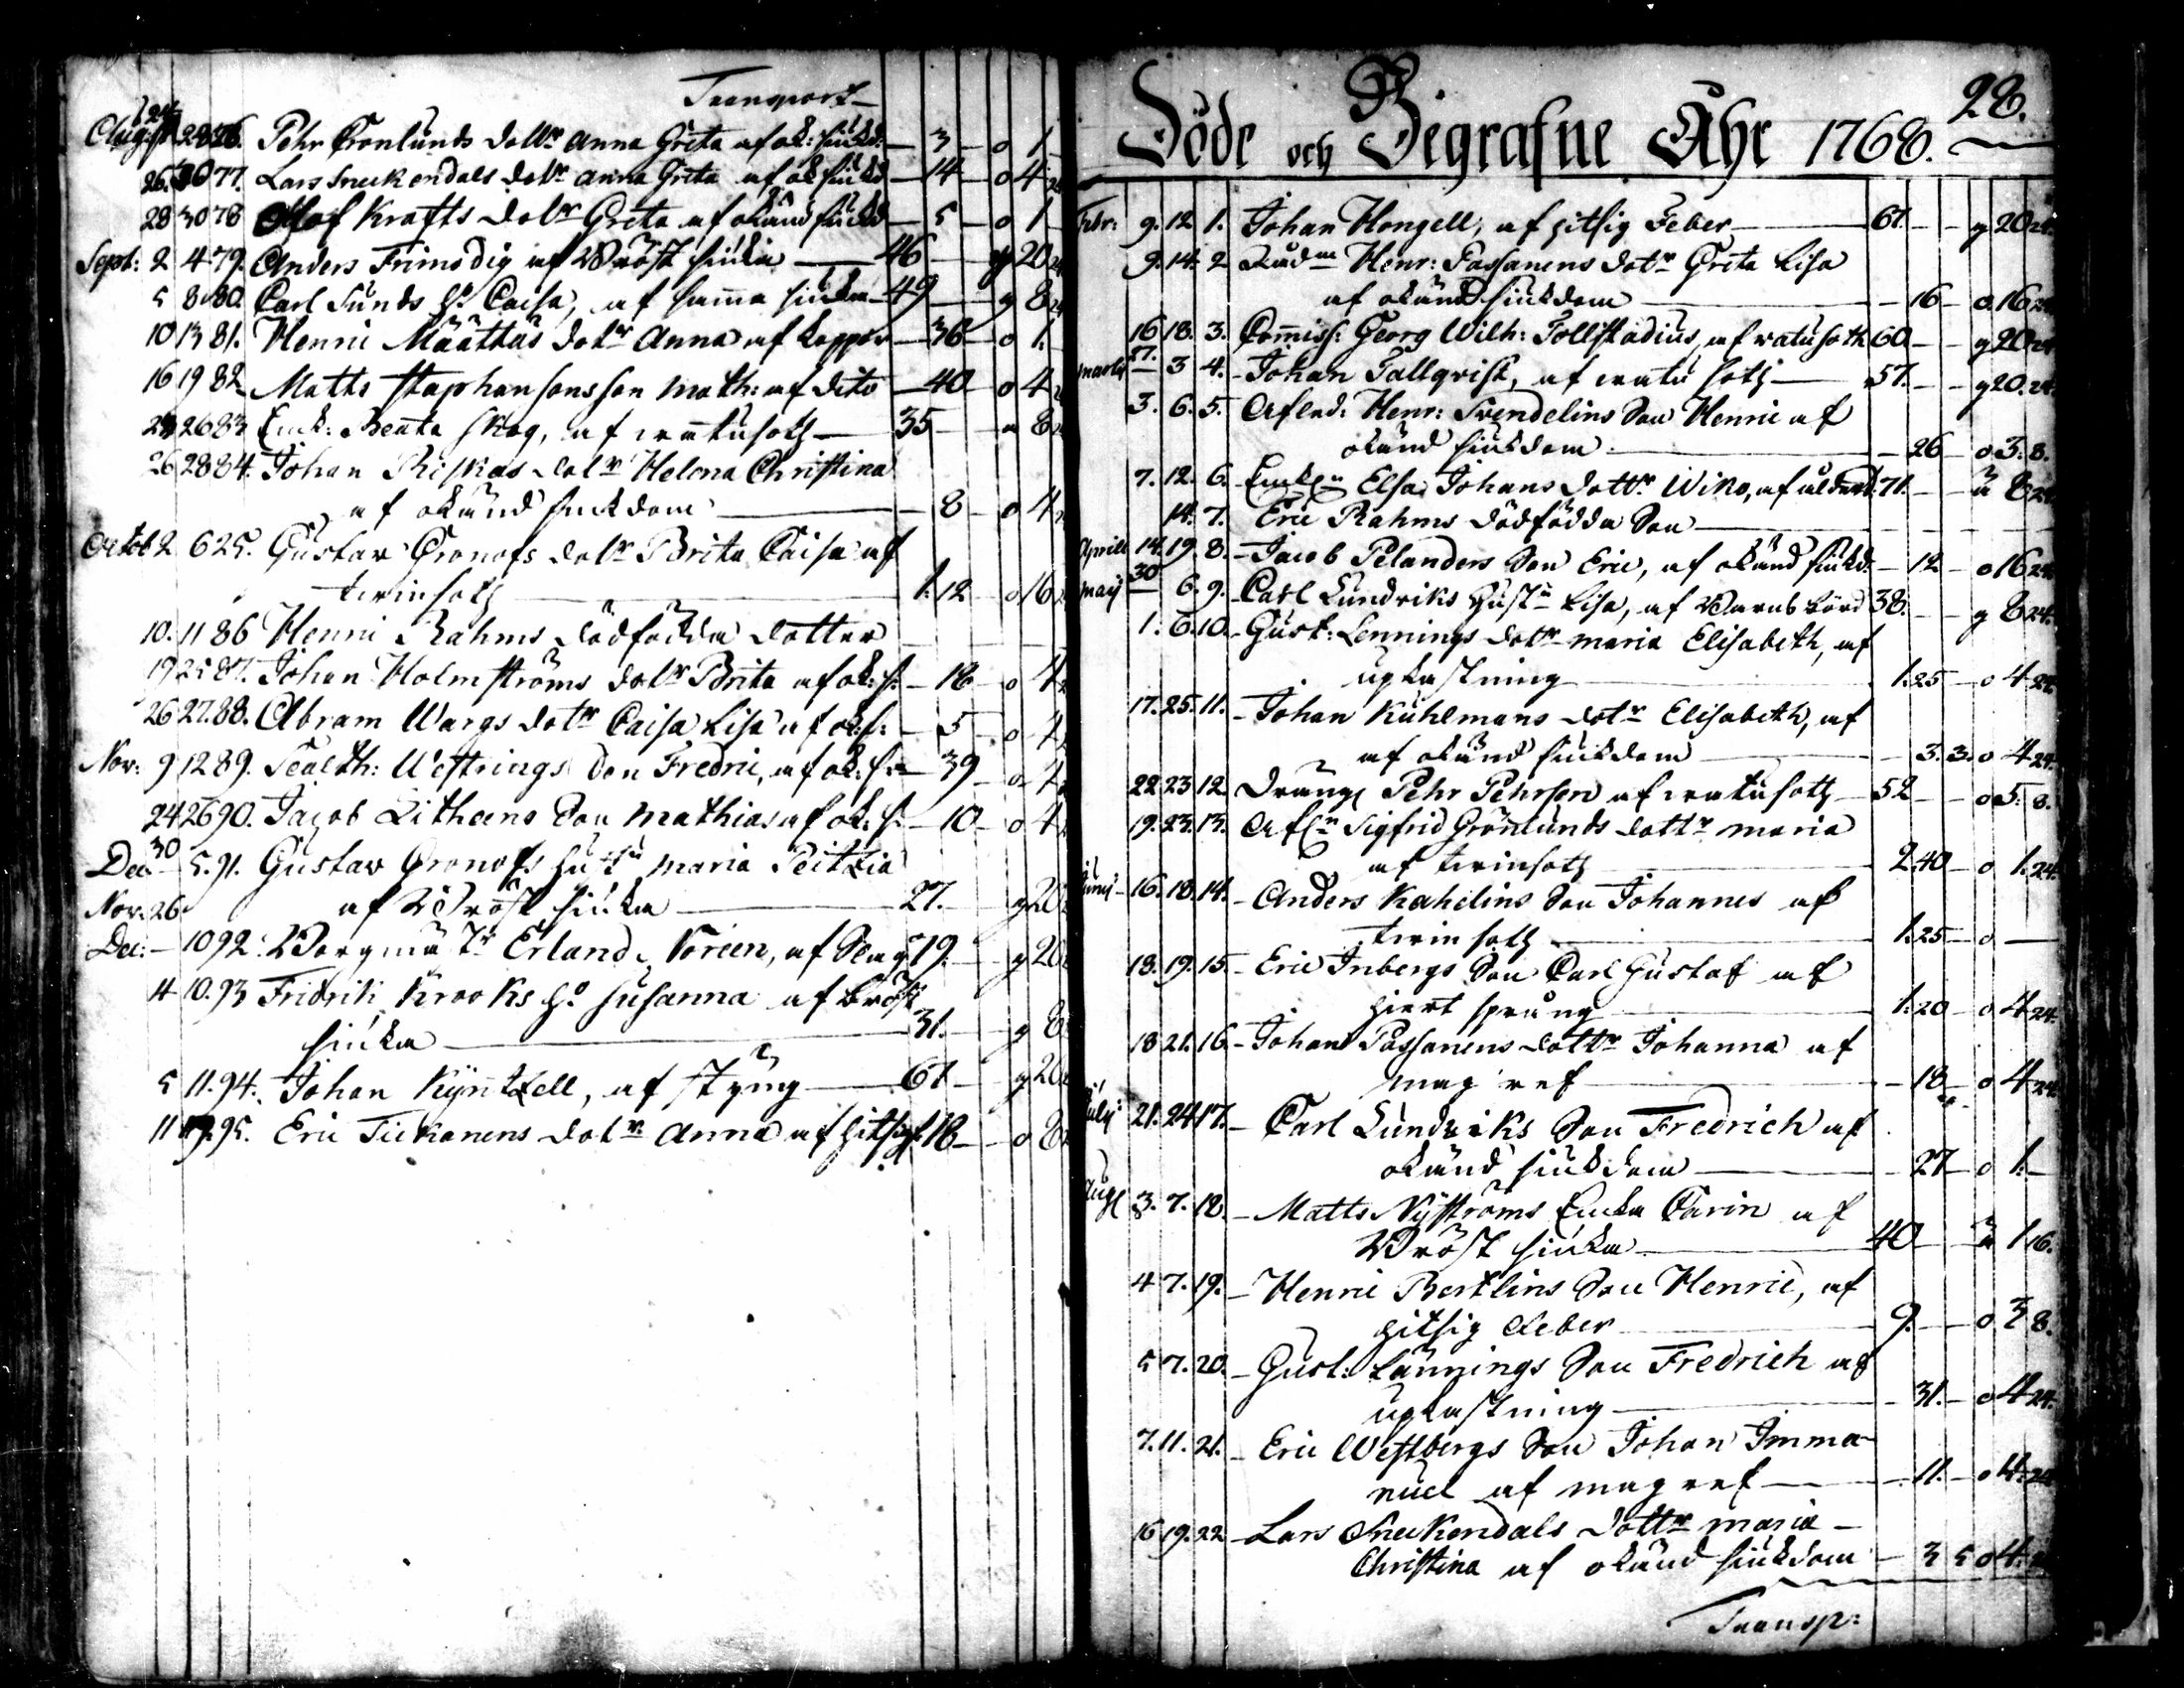 Transport
August 24 26 76. Pehr Cronlunds dottr Anna Greta af ok: siukd: — 3 — o 1.
26. 30 77. Lars Sneckendals dotr Anna Greta af ok siukd — 14 — o 4
28 30 78 Olof Krafts dotr Greta af okänd siukd — 5 — o 1
Sept: 2 4 79. Anders Frimodig af Bröst siuka — 46 — g 20
5 8 80. Carl Sunds ho Caisa, af samma siuka — 49 — g 8
10 13 81. Henric Määttäs dotr Anna af koppor — 36 — o 1.
16 19 82 Matts Staphansons son Math: af dito — 40 — o 4
26 83 Enk: Beata Skog, af rötusoth — 35 — a 8
26 28 84. Johan Riskas dotr Helena Christina
af okänd siukdom — 8 — o 4
Octob 2 6 25. Gustav Gronofs dotr Brita Caisa af
twinsoth — 1. 12 o 16
10. 11 86 Henric Rahms dödfödda dotter
19 25 87. Johan Holmströms dotr Brita af ok: s: — 18 — o 4
26 27. 88. Abram Wargs dotr Caisa Lisa af ok s: — 5 — o 4
Nov: 9 12 89. Westrings Son Fredric, af ok: s: — 39 — o 4
24 26 90. Jacob Litheens Son Mathias af ok: s: — 10 — o 4
Dec. 30 5. 91. Gustav Gronofs hust: Maria Peitzia
Nov: 26 af Bröst siuka — 27. — g 20
Dec: — 10 92. Borgmästr Erland Noreen, af Slag 79. — g 20
4 10. 93 Fridrik Krooks ho Susanna af bröst
siuka — 31. — g 8
5 11. 94. Johan Kyntzell, af styng — 61 — g 20
11 19. 95. Eric Tickanens dotr Anna af hitsig f. 18 — o 8
28.
Döde och Begrafne Åhr 1768.
Febr: 9. 12. 1. Johan Hongell, af hitsig Feber — 61. — g 20 24.
9. 14. 2 Rådm Henr: Passanens dotr Greta Lisa
af okänd siukdom — 16 — o. 16 24
16 18. 3. Commiss: Georg Wilh: Tollstadius, af rötusoth 60 — g 20 24
Martij 27. — 3 4. Johan Tallqvist, af rötu soth — 57. — g 20. 24.
3. 6. 5. Afled: Henr: Svendelins Son Henric af
okänd siukdom — 26 — o 3. 8.
7. 12. 6. Enk Elsa Johans dottr Wiko, af ålderd. 71. — a 8 24
14. 7. Eric Rahms dödfödda Son
Aprill 14. 19. 8. Jacob Pelanders Son Eric, af okänd siukd: — 12 — o 16 24
Maij 30 — 6. 9. Carl Lundriks Hust Lisa, af Barnsbörd 38. — g 8 24.
1. 6. 10. Gust: Lennings dotr Maria Elisabeth, af
upkastning — 1. 25 — o 4 24.
17. 25. 11. Johan Kuhlmans dotr Elisabeth, af
af okänd siukdom — 3. 3. o 4 24.
22 23 12 Dräng Pehr Pehrson af rötusoth — 52 — o 5. 8.
19. 23. 13. Afl Sigfrid Grönlunds dottr Maria
af twinsoth — 2. 40 — o 1. 24.
Junij 16. 18. 14. Anders Kahelins Son Johannes af
twin soth — 1. 25 — o —
18. 19. 15. Eric Inbergs Son Carl Gustaf af
hiert språng — 1. 20 — o 4 24.
18 21. 16. Johan Passanens dottr Johanna af
mag ref — 18 — o 4 24.
July 21. 24 17. Carl Lundriks Son Fredrich af
okänd siukdom — 27 o 1. —
Aug 3. 7. 18. Matts Nyströms Enka Carin af
Bröst siuka — 40 — a 1 16.
4 7. 19. Henric Bertlins Son Henric, af
hitsig Feber — 9. — o 3 8.
5 7. 20. Gust: Lännings Son Fredrich af
upkastning — 31. — o 4 24.
7. 11. 21. Eric Westbergs Son Johan Imma-
nuel af mag ref — 11. — o 4. 24
16 19. 22 Lars Sneckendals dottr Maria
Christina af okänd siukdom — 3 5 o 4.
Transp: